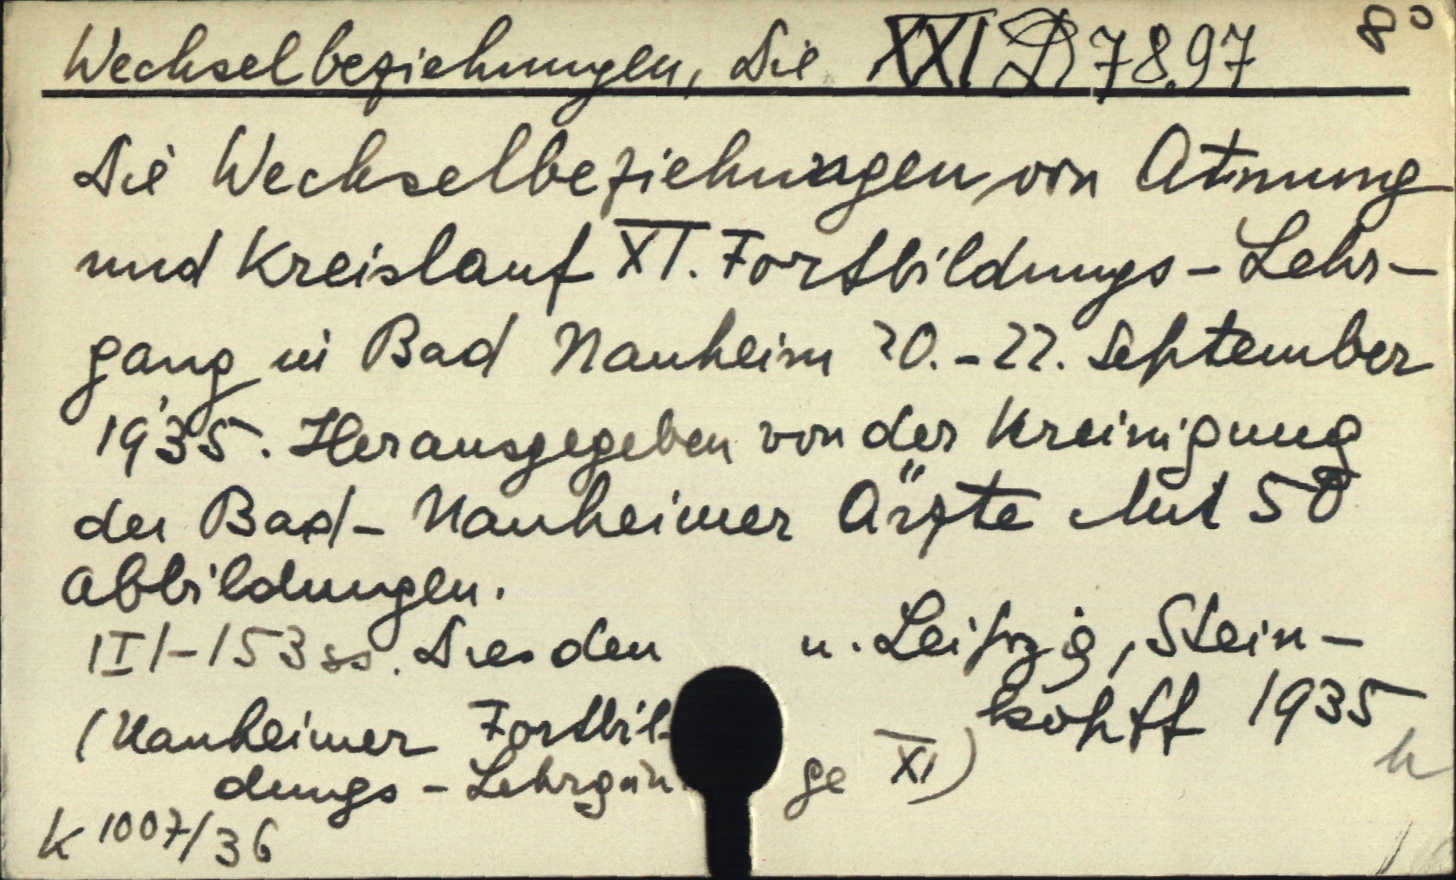 Wechselbeziehungen, Die XXI D 7897 8°
Die Wechselbeziehungen von Atmung
und Kreislauf XI. Fortbildungs-Lehr-
gang in Bad Nauheim 20.-22. September
1935. Herausgegeben von der Vereinigung
der Bad-Nauheimer Ärzte Mit 50
Abbildungen.
III-153 ss. Dresden u. Leipzig, Stein-
kopff 1935
(Nauheimer Fortbil-
dungs-Lehrgänge XI)
K 1007/36